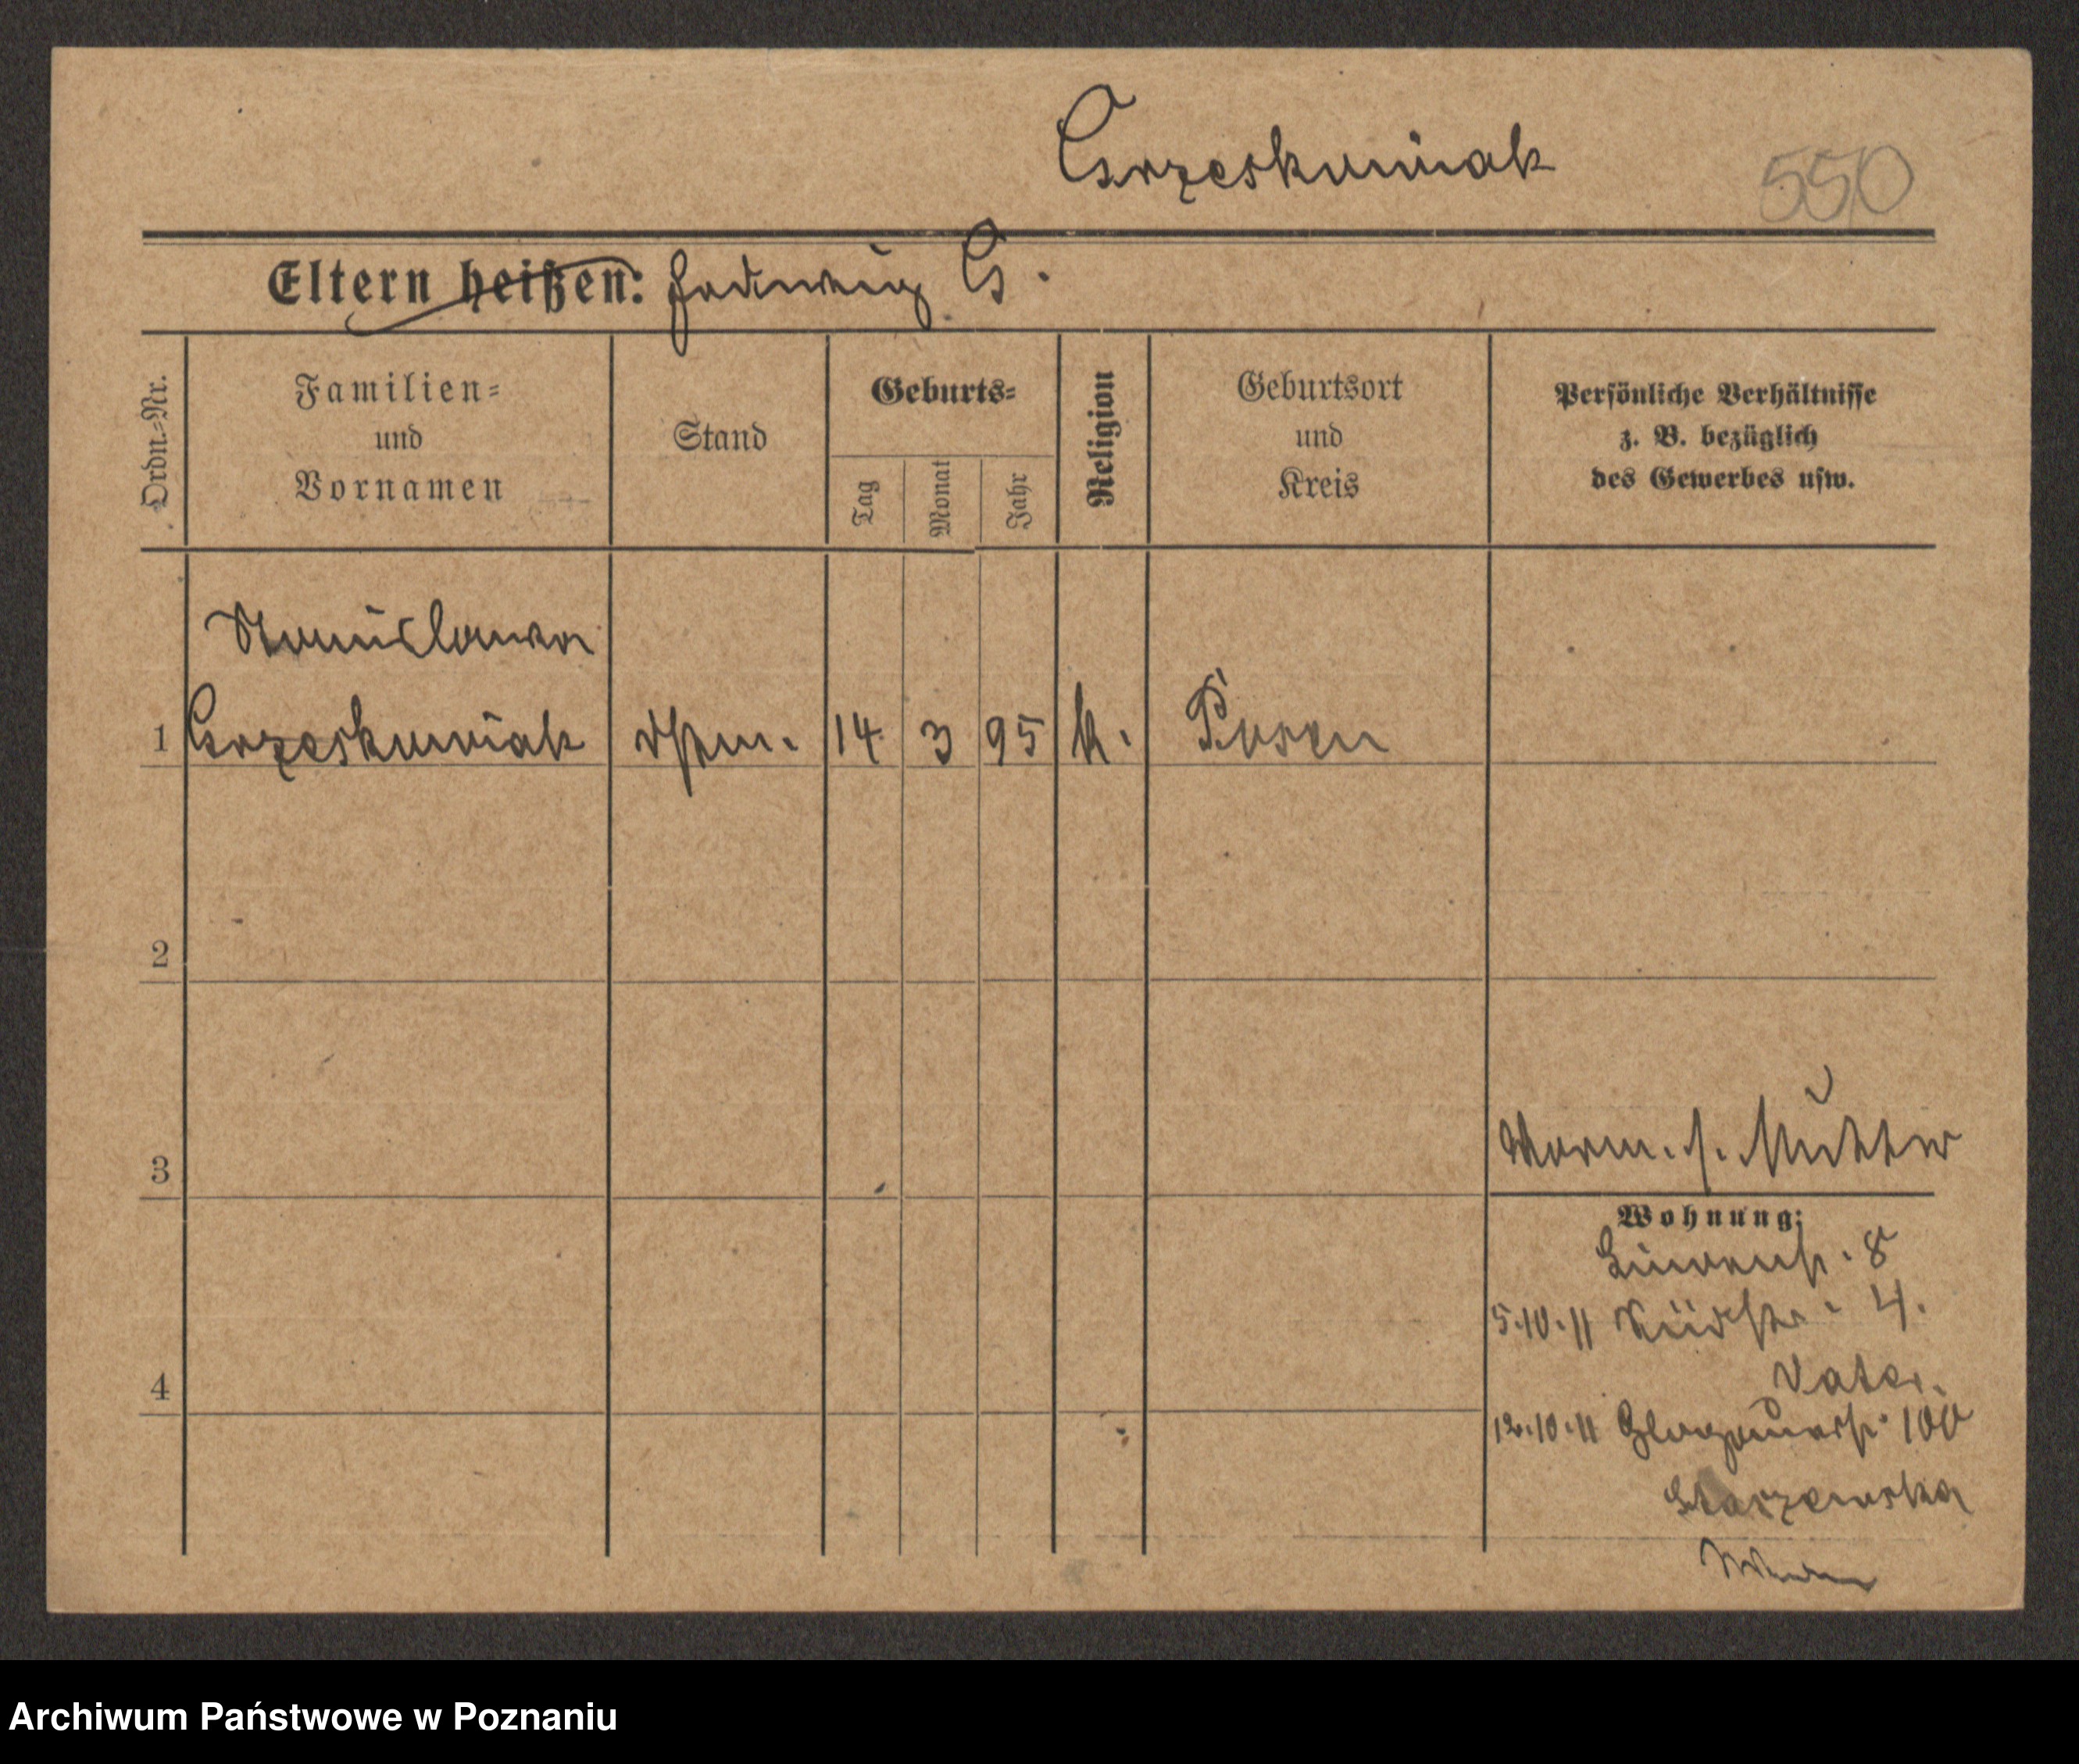 Grzeskowiak
550
Eltern heißen: Hedwig G.
Ordn.=Nr.
Familien=
und
Vornamen
Stand
Geburts=
Tag
Monat
Jahr
Religion
Geburtsort
und
Kreis
Persönliche Verhältnisse
z. B. bezüglich
des Gewerbes usw.
Stanislawa
1 Grzeskowiak 14 3 95 k. Posen
2
3
Vorm. s. Mutter
Wohnung:
8
5.10.11 4.
Vater.
4
12.10.11 Glogauerstr. 100
Staszewska
Archiwum Państwowe w Poznaniu